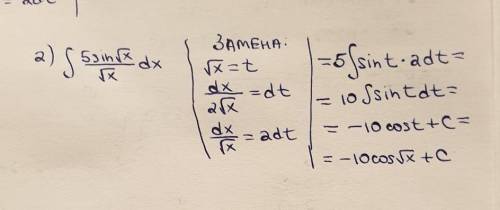 2) ∫ 5sin√x/√x dx
ЗАМЕНА:
√x = t
dx/2√x = dt
dx/√x = 2dt
= 5∫sint · 2dt =
= 10∫sint dt =
= -10cost + C =
= -10cos√x + C